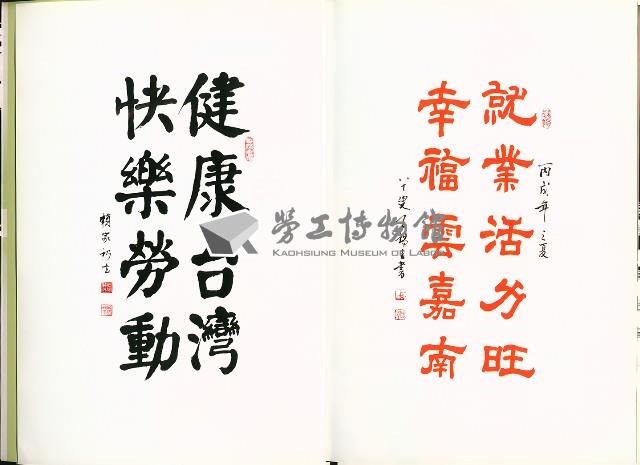 健康台灣
快樂勞動
就業活力旺
幸福雲嘉南
丙戌年之夏
八十叟
書
勞工博物館
KAOHSIUNG MUSEUM OF LABOR